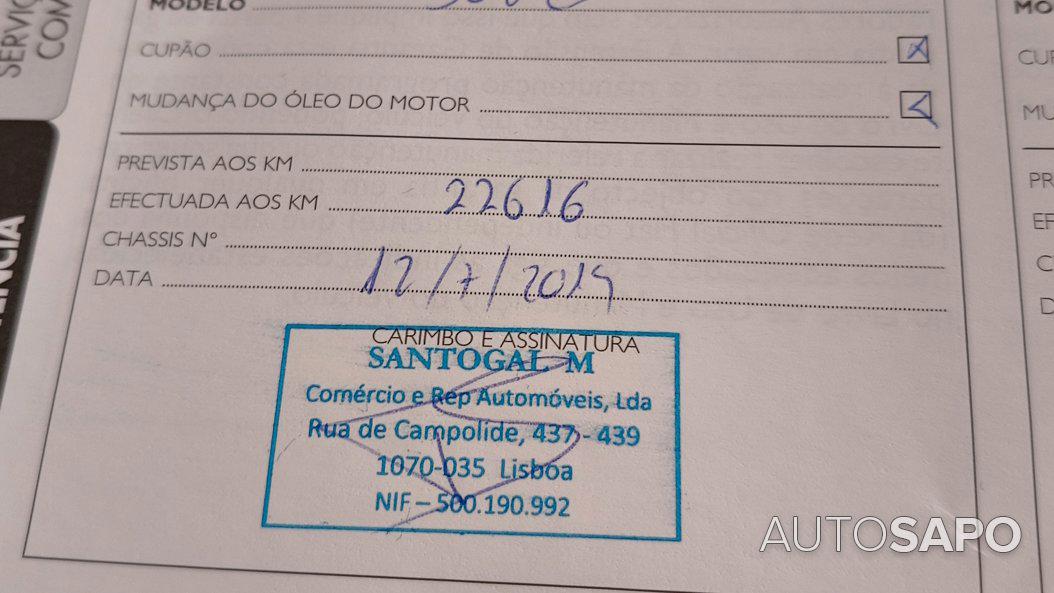 SERVIÇ
COM
MODELO
CUPÃO
MUDANÇA DO ÓLEO DO MOTOR
PREVISTA AOS KM
EFECTUADA AOS KM 22616
CHASSIS Nº
DATA 12/7/2019
CARIMBO E ASSINATURA
SANTOGAL M
Comércio e Rep Automóveis, Lda
Rua de Campolide, 437 - 439
1070-035 Lisboa
NIF – 500.190.992
ÊNCIA
MO
CUP
MU
PR
EF
C
D
AUTOSAPO